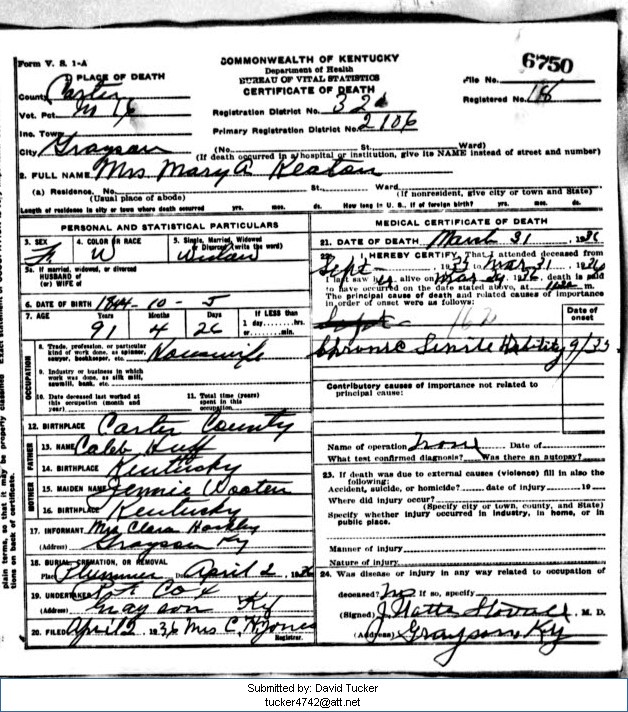 Form V. S. 1-A
COMMONWEALTH OF KENTUCKY
Department of Health
BUREAU OF VITAL STATISTICS
CERTIFICATE OF DEATH
6750
File No.
Registered No. 18
PLACE OF DEATH
County Carter
Vot. Pct. No 16
Inc. Town
City Grayson
Registration District No. 320
Primary Registration District No. 2106
(No. St. Ward)
(If death occurred in a hospital or institution, give its NAME instead of street and number)
2. FULL NAME Mrs Mary A Keaton
(a) Residence. No. St., Ward
(Usual place of abode) (If nonresident, give city or town and State)
Length of residence in city or town where death occurred yrs. mos. ds. How long in U. S., if of foreign birth? yrs. mos. ds.
PERSONAL AND STATISTICAL PARTICULARS
3. SEX F
4. COLOR OR RACE W
5. Single, Married, Widowed or Divorced (write the word) Widow
5a. If married, widowed, or divorced
HUSBAND of
(or) WIFE of
6. DATE OF BIRTH 1844-10-5
7. AGE Years Months Days If LESS than
91 4 26 1 day hrs. or min.
OCCUPATION
8. Trade, profession, or particular kind of work done, as spinner, sawyer, bookkeeper, etc. Housewife
9. Industry or business in which work was done, as silk mill, sawmill, bank, etc.
10. Date deceased last worked at this occupation (month and year)
11. Total time (years) spent in this occupation
12. BIRTHPLACE Carter County
FATHER
13. NAME Caleb Huff
14. BIRTHPLACE Kentucky
MOTHER
15. MAIDEN NAME Jennie Wooten
16. BIRTHPLACE Kentucky
17. INFORMANT Mrs Clara
(Address) Grayson Ky
18. BURIAL, CREMATION, OR REMOVAL
Place Plummer Date April 2, 1936
19. UNDERTAKER Cox
Grayson Ky
20. FILED April 2 1936 Mrs C. H. Jones
Registrar.
MEDICAL CERTIFICATE OF DEATH
21. DATE OF DEATH March 31, 1936
22. I HEREBY CERTIFY, That I attended deceased from
Sept to Mar 31, 1936
I last saw her alive on Mar 1936 death is said
to have occurred on the date stated above, at m.
The principal cause of death and related causes of importance
in order of onset were as follows:
Date of onset
162
Chronic Senile Debility 9/35
Contributory causes of importance not related to
principal cause:
Name of operation None Date of
What test confirmed diagnosis? Was there an autopsy?
23. If death was due to external causes (violence) fill in also the
following:
Accident, suicide, or homicide? date of injury 19
Where did injury occur?
(Specify city or town, county, and State)
Specify whether injury occurred in industry, in home, or in
public place.
Manner of injury
Nature of injury
24. Was disease or injury in any way related to occupation of
deceased? No If so, specify
(Signed) J. Watts Stovall, M. D.
(Address) Grayson, Ky
plain terms, so that it may be properly classified.
tions on back of certificate.
Submitted by: David Tucker
tucker4742@att.net